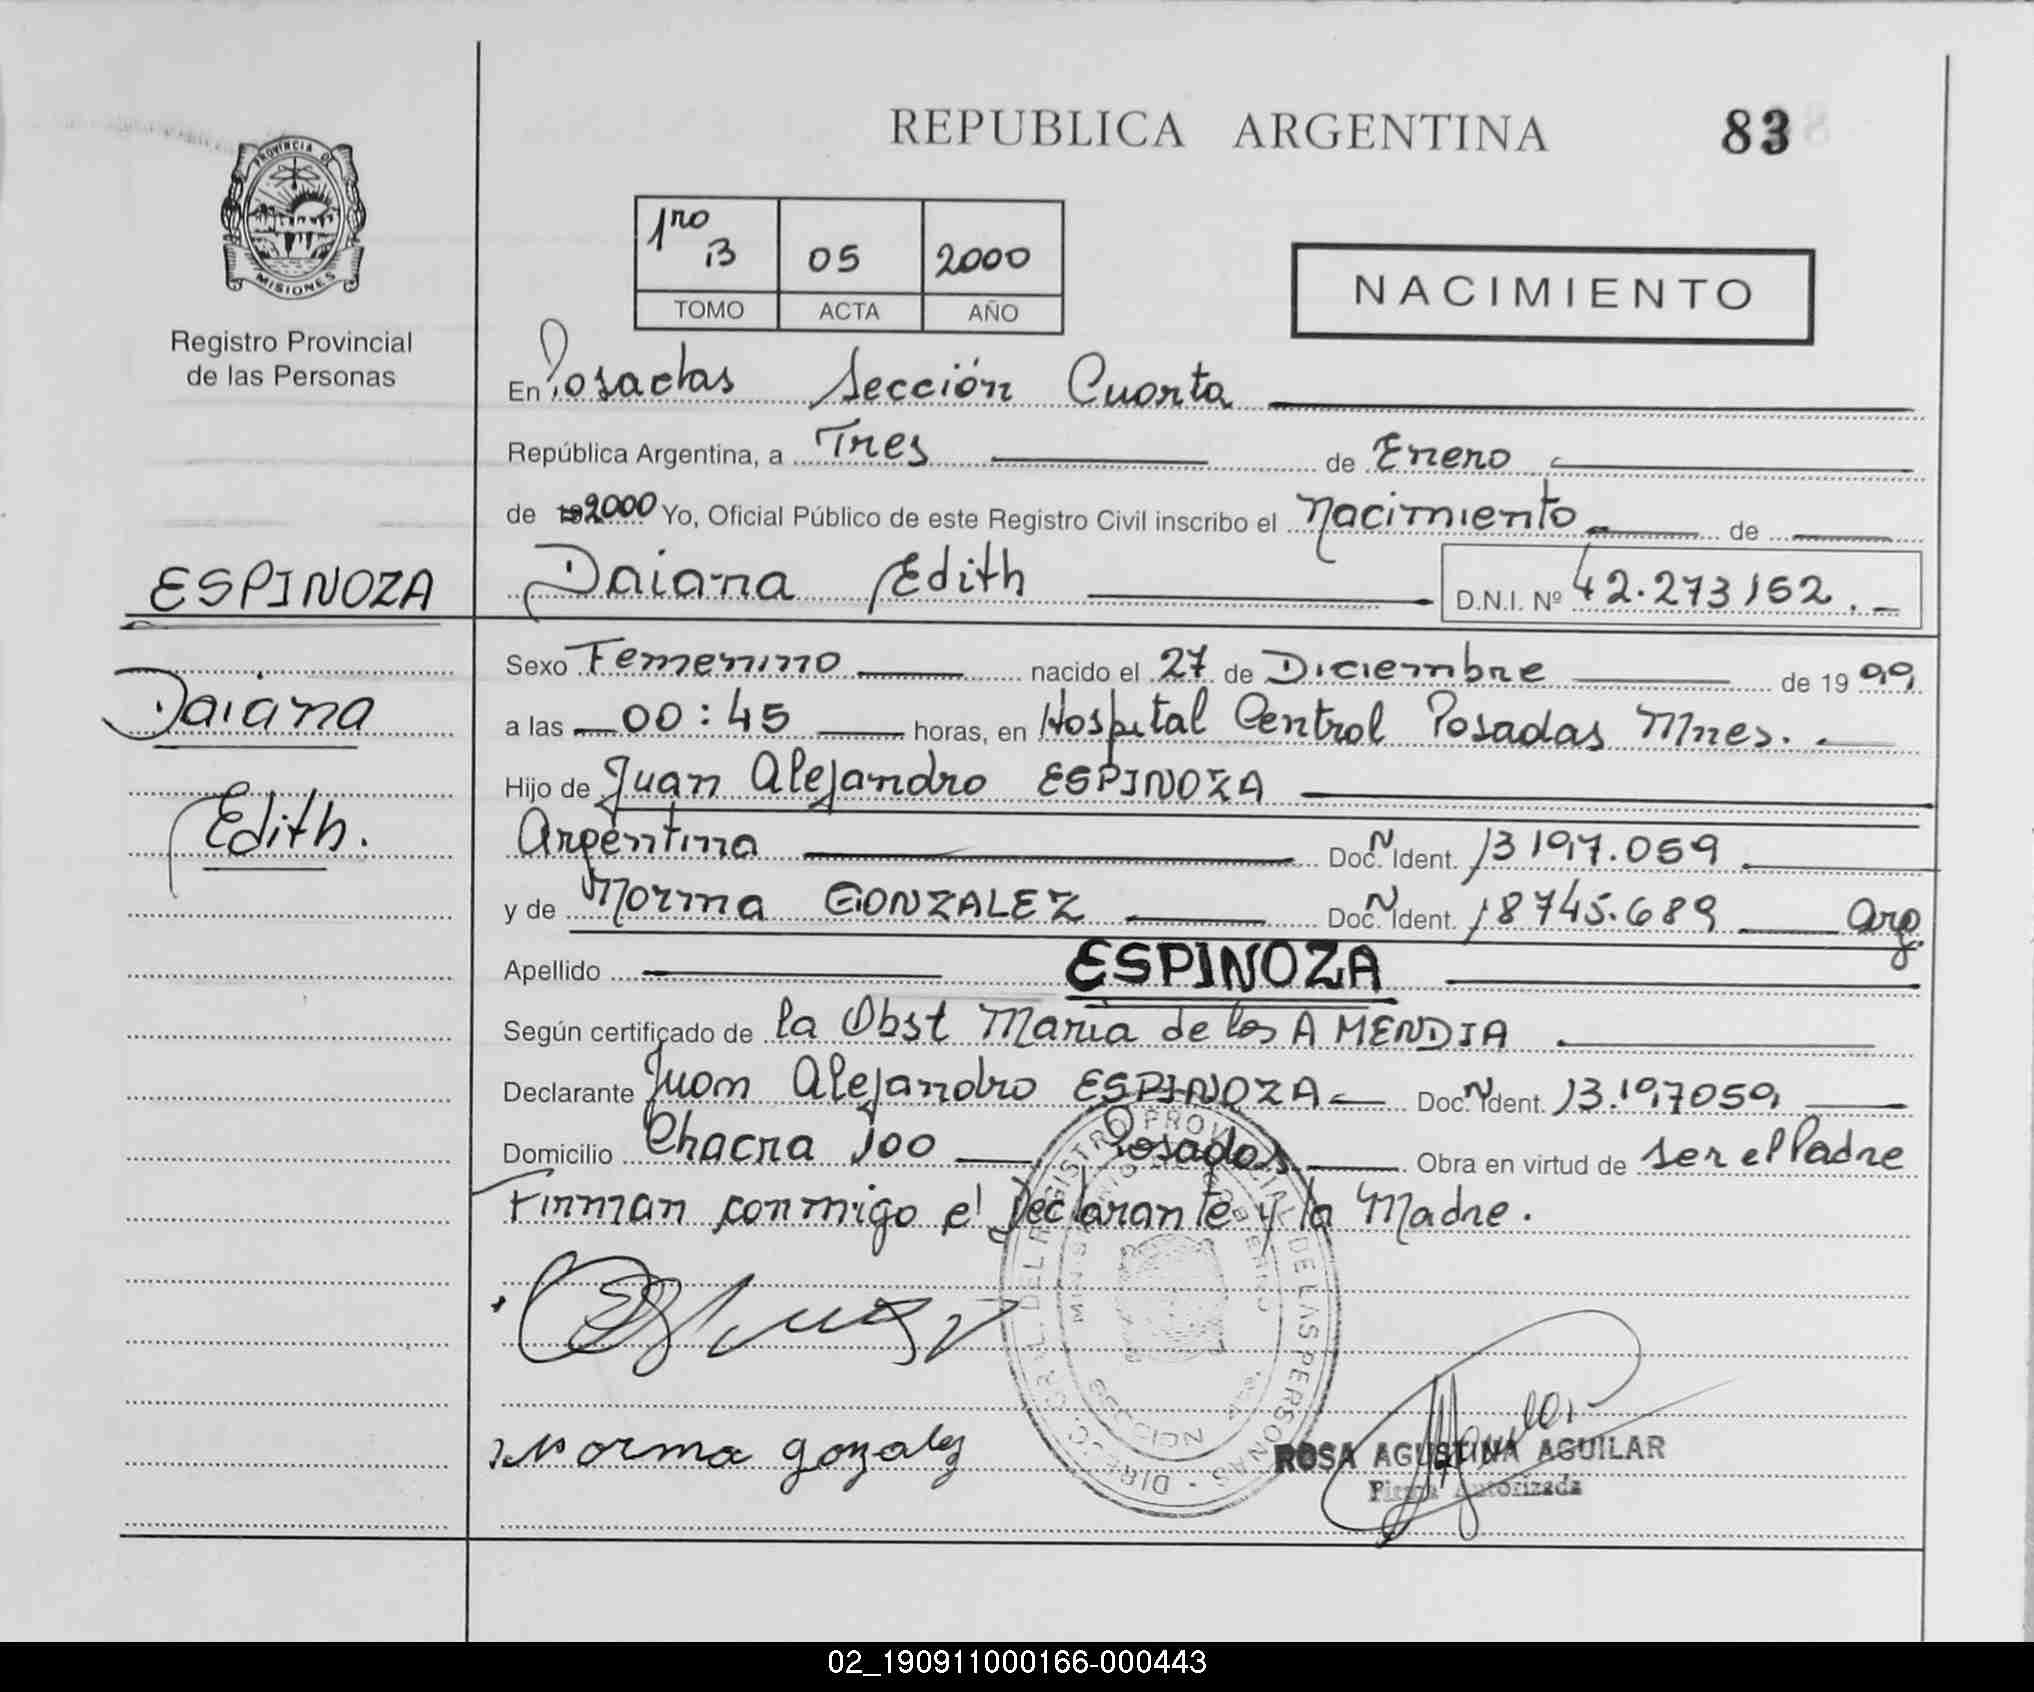 REPUBLICA ARGENTINA 83
PROVINCIA DE MISIONES
Registro Provincial
de las Personas
1ro B 05 2000
TOMO ACTA AÑO
NACIMIENTO
En Posadas Sección Cuarta
República Argentina, a Tres de Enero
de 2000 Yo, Oficial Público de este Registro Civil inscribo el Nacimiento de
ESPINOZA
Daiana Edith D.N.I. Nº 42.273152.
Daiana
Edith.
Sexo Femenino nacido el 27 de Diciembre de 1999
a las 00:45 horas, en Hospital Central Posadas Mnes.
Hijo de Juan Alejandro ESPINOZA
Argentina Doc. N Ident. 13197.059
y de Norma GONZALEZ Doc. N Ident. 18745.689 Arg.
Apellido ESPINOZA
Según certificado de la Obst Maria de los A MENDIA
Declarante Juan Alejandro ESPINOZA Doc. N Ident. 13.197059
Domicilio Chacra 100 Posadas Obra en virtud de ser el Padre
Firman conmigo el Declarante y la Madre.
DIRECC. GRAL. DEL REGISTRO PROVINCIAL DE LAS PERSONAS
MINISTERIO DE GOBIERNO
SECCION 4ta.
Norma gonzalez
ROSA AGUSTINA AGUILAR
Firma Autorizada
02_190911000166-000443